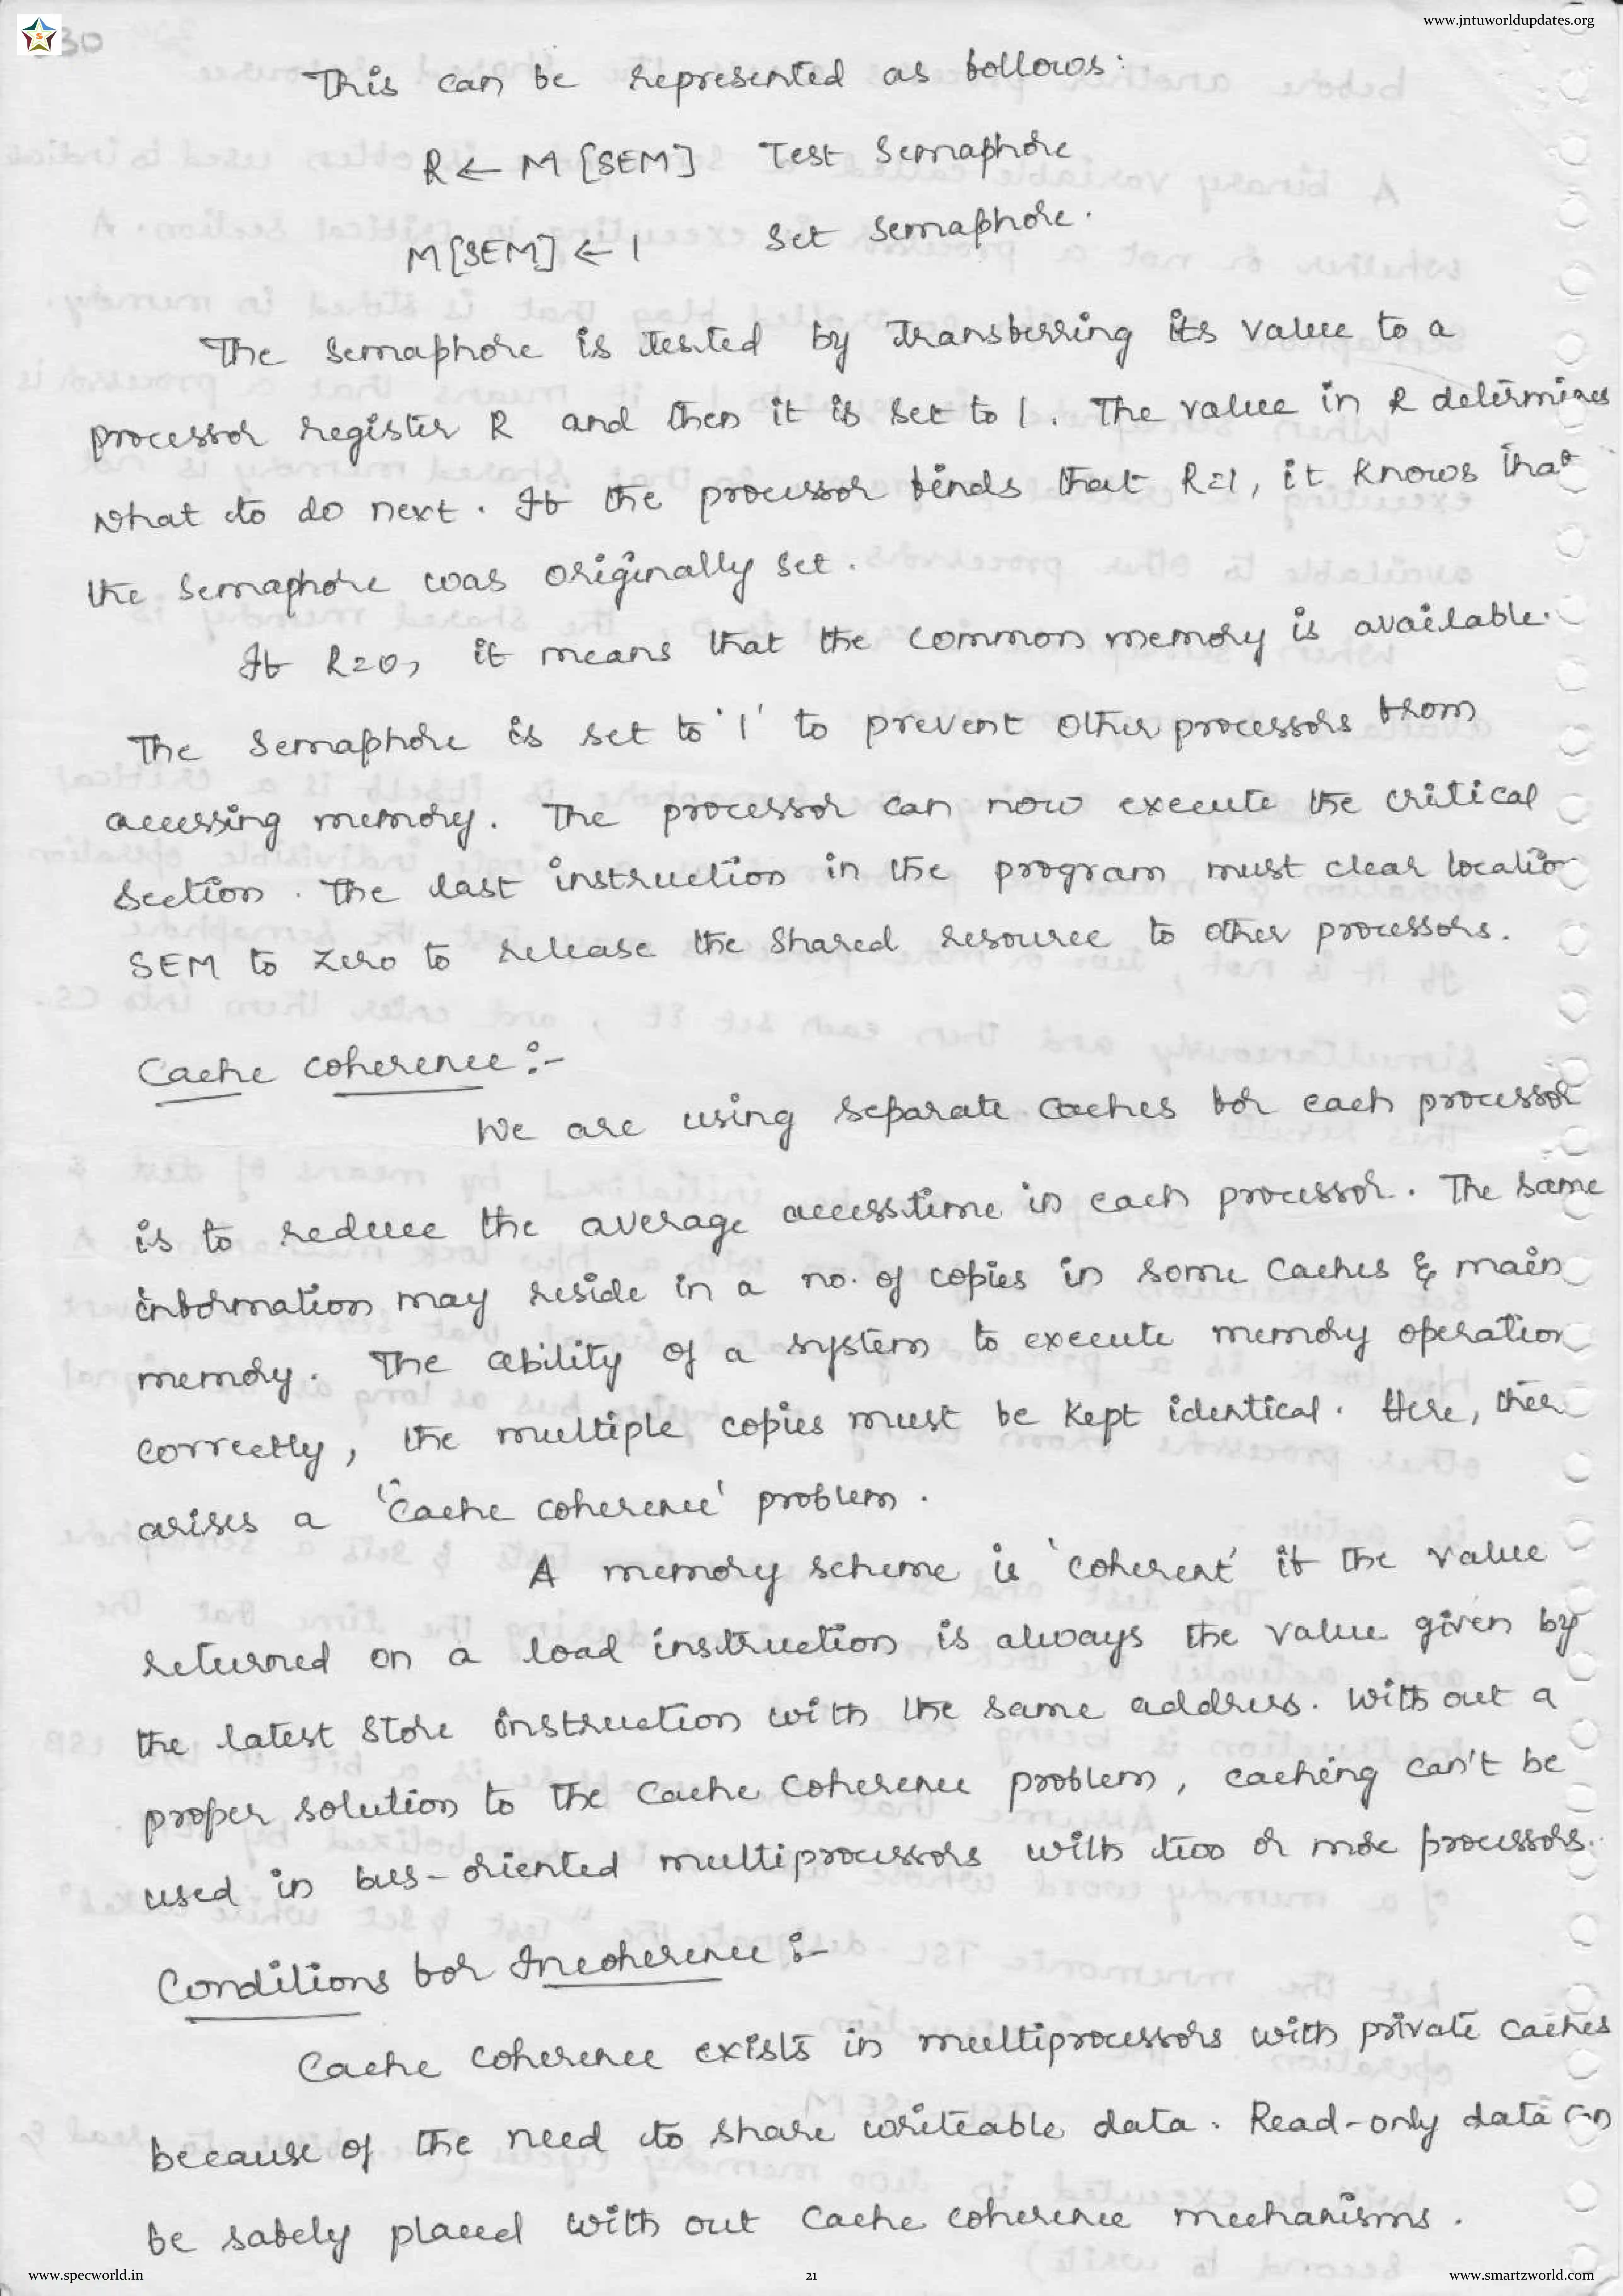 www.jntuworldupdates.org
S
30
This can be represented as follows:
R ← M [SEM] Test Semaphore
M[SEM] ← 1 Set Semaphore.
The Semaphore is tested by transferring its value to a
processor register R and then it is set to 1. The value in R determines
what to do next. If the processor finds that R=1, it knows that
the semaphore was originally set.
If R=0, it means that the common memory is available.
The Semaphore is set to '1' to prevent other processors from
accessing memory. The processor can now execute the critical
section. The last instruction in the program must clear locatio
SEM to zero to release the shared resource to other processors.
Cache coherence :-
We are using separate caches for each processor
is to reduce the average access time in each processor. The same
information may reside in a no. of copies in some caches & main
memory. The ability of a system to execute memory operation
correctly, the multiple copies must be kept identical. Here, ther
arises a "cache coherence' problem.
A memory scheme is 'coherent' if the value
returned on a load instruction is always the value given by
the latest store instruction with the same address. With out a
proper solution to the cache coherence problem, caching can't be
used in bus-oriented multiprocessors with two or more processors.
Conditions for Incoherence :-
Cache coherence exists in multiprocessors with private caches
because of the need to share writeable data. Read-only data can
be safely placed with out cache coherence mechanisms.
www.specworld.in 21 www.smartzworld.com